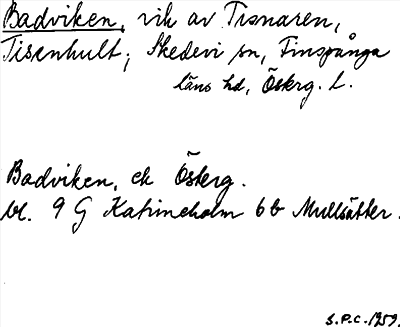 Badviken, vik av Tisnaren,
Tisenhult, Skedevi sn, Finspånga
läns hd, Österg. l.
Badviken, ek Österg.
bl. 9 G Katrineholm 6b Mullsätter.
S.P.C. 1959.